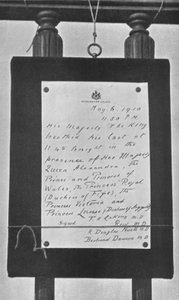 BUCKINGHAM PALACE
May. 6. 1910
11.50 P.M.
His Majesty The King
breathed his last at
11.45 tonight in the
presence of Her Majesty
Queen Alexandra, the
Prince and Princess of
Wales, the Princess Royal
(Duchess of Fife), the
Princess Victoria and
Princess Louise (Duchess of Argyll)
F. Laking M.D.
Signed
R. Douglas Powell M.D.
Bertrand Dawson M.D.